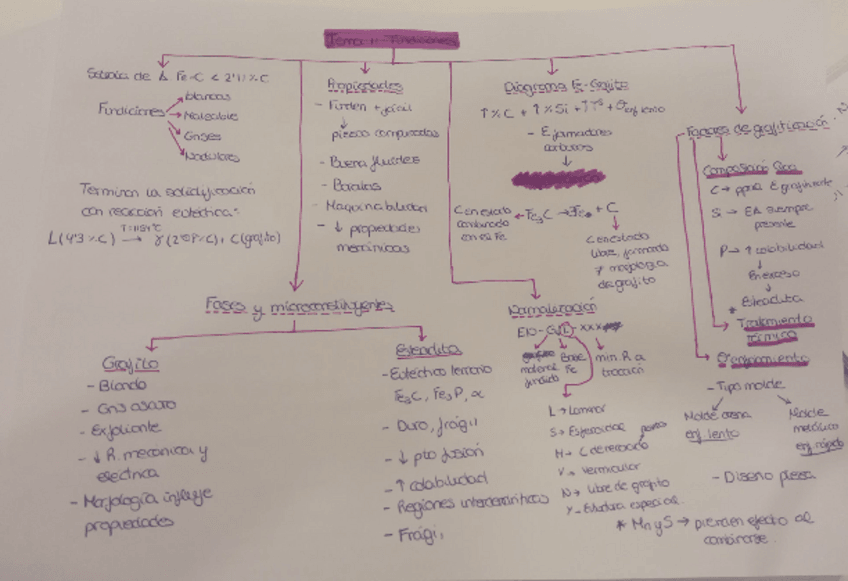 Tema 11 Fundiciones
Fe-C < 2'11 % C
Fundiciones
blancas
Maleable
Grises
Nodulares
Terminan la solidificación
con reacción eutéctica:
T=1154ºC
L(4'3 % C) → γ(2'08% C) + C(grafito)
Propiedades
- Funden + fácil
piezas complicadas
- Buena fluidez
- Baratas
- Maquinabilidad
- ↓ propiedades
mecánicas
Diagrama Fe-Grafito
↑ % C + ↑ % Si + ↑ Tª +
- Eformadores
carburos
Con estado
combinado
con el Fe
← Fe₃C → 3Fe + C
C en estado
libre, formado
y morfología
de grafito
Factores de grafitización
Composición
C → ppal E grafitizante
Si → EA siempre
presente
P → ↑ colabilidad
En exceso
* Esteadita
Tratamiento
térmico
Enfriamiento
- Tipo molde
Molde arena
enf. lento
Molde
metálico
enf. rápido
- Diseño pieza
* Mn y S → pierden efecto al
combinarse
Fases y microconstituyentes
Grafito
- Blando
- Gris oscuro
- Exfoliante
- ↓ R. mecánica y
eléctrica
- Morfología influye
propiedades
Esteadita
- Eutéctico ternario
Fe₃C, Fe₃P, α
- Duro, frágil
- ↓ pto fusión
- ↑ colabilidad
- Regiones interdendríticas
- Frágil
Nomenclatura
EN-GJL-XXX
material
fundido
Base
Fe
min. R a
tracción
L → Laminar
S → Esferoidal
M → C de recocido
V → Vermicular
N → Libre de grafito
Y → Estructura especial